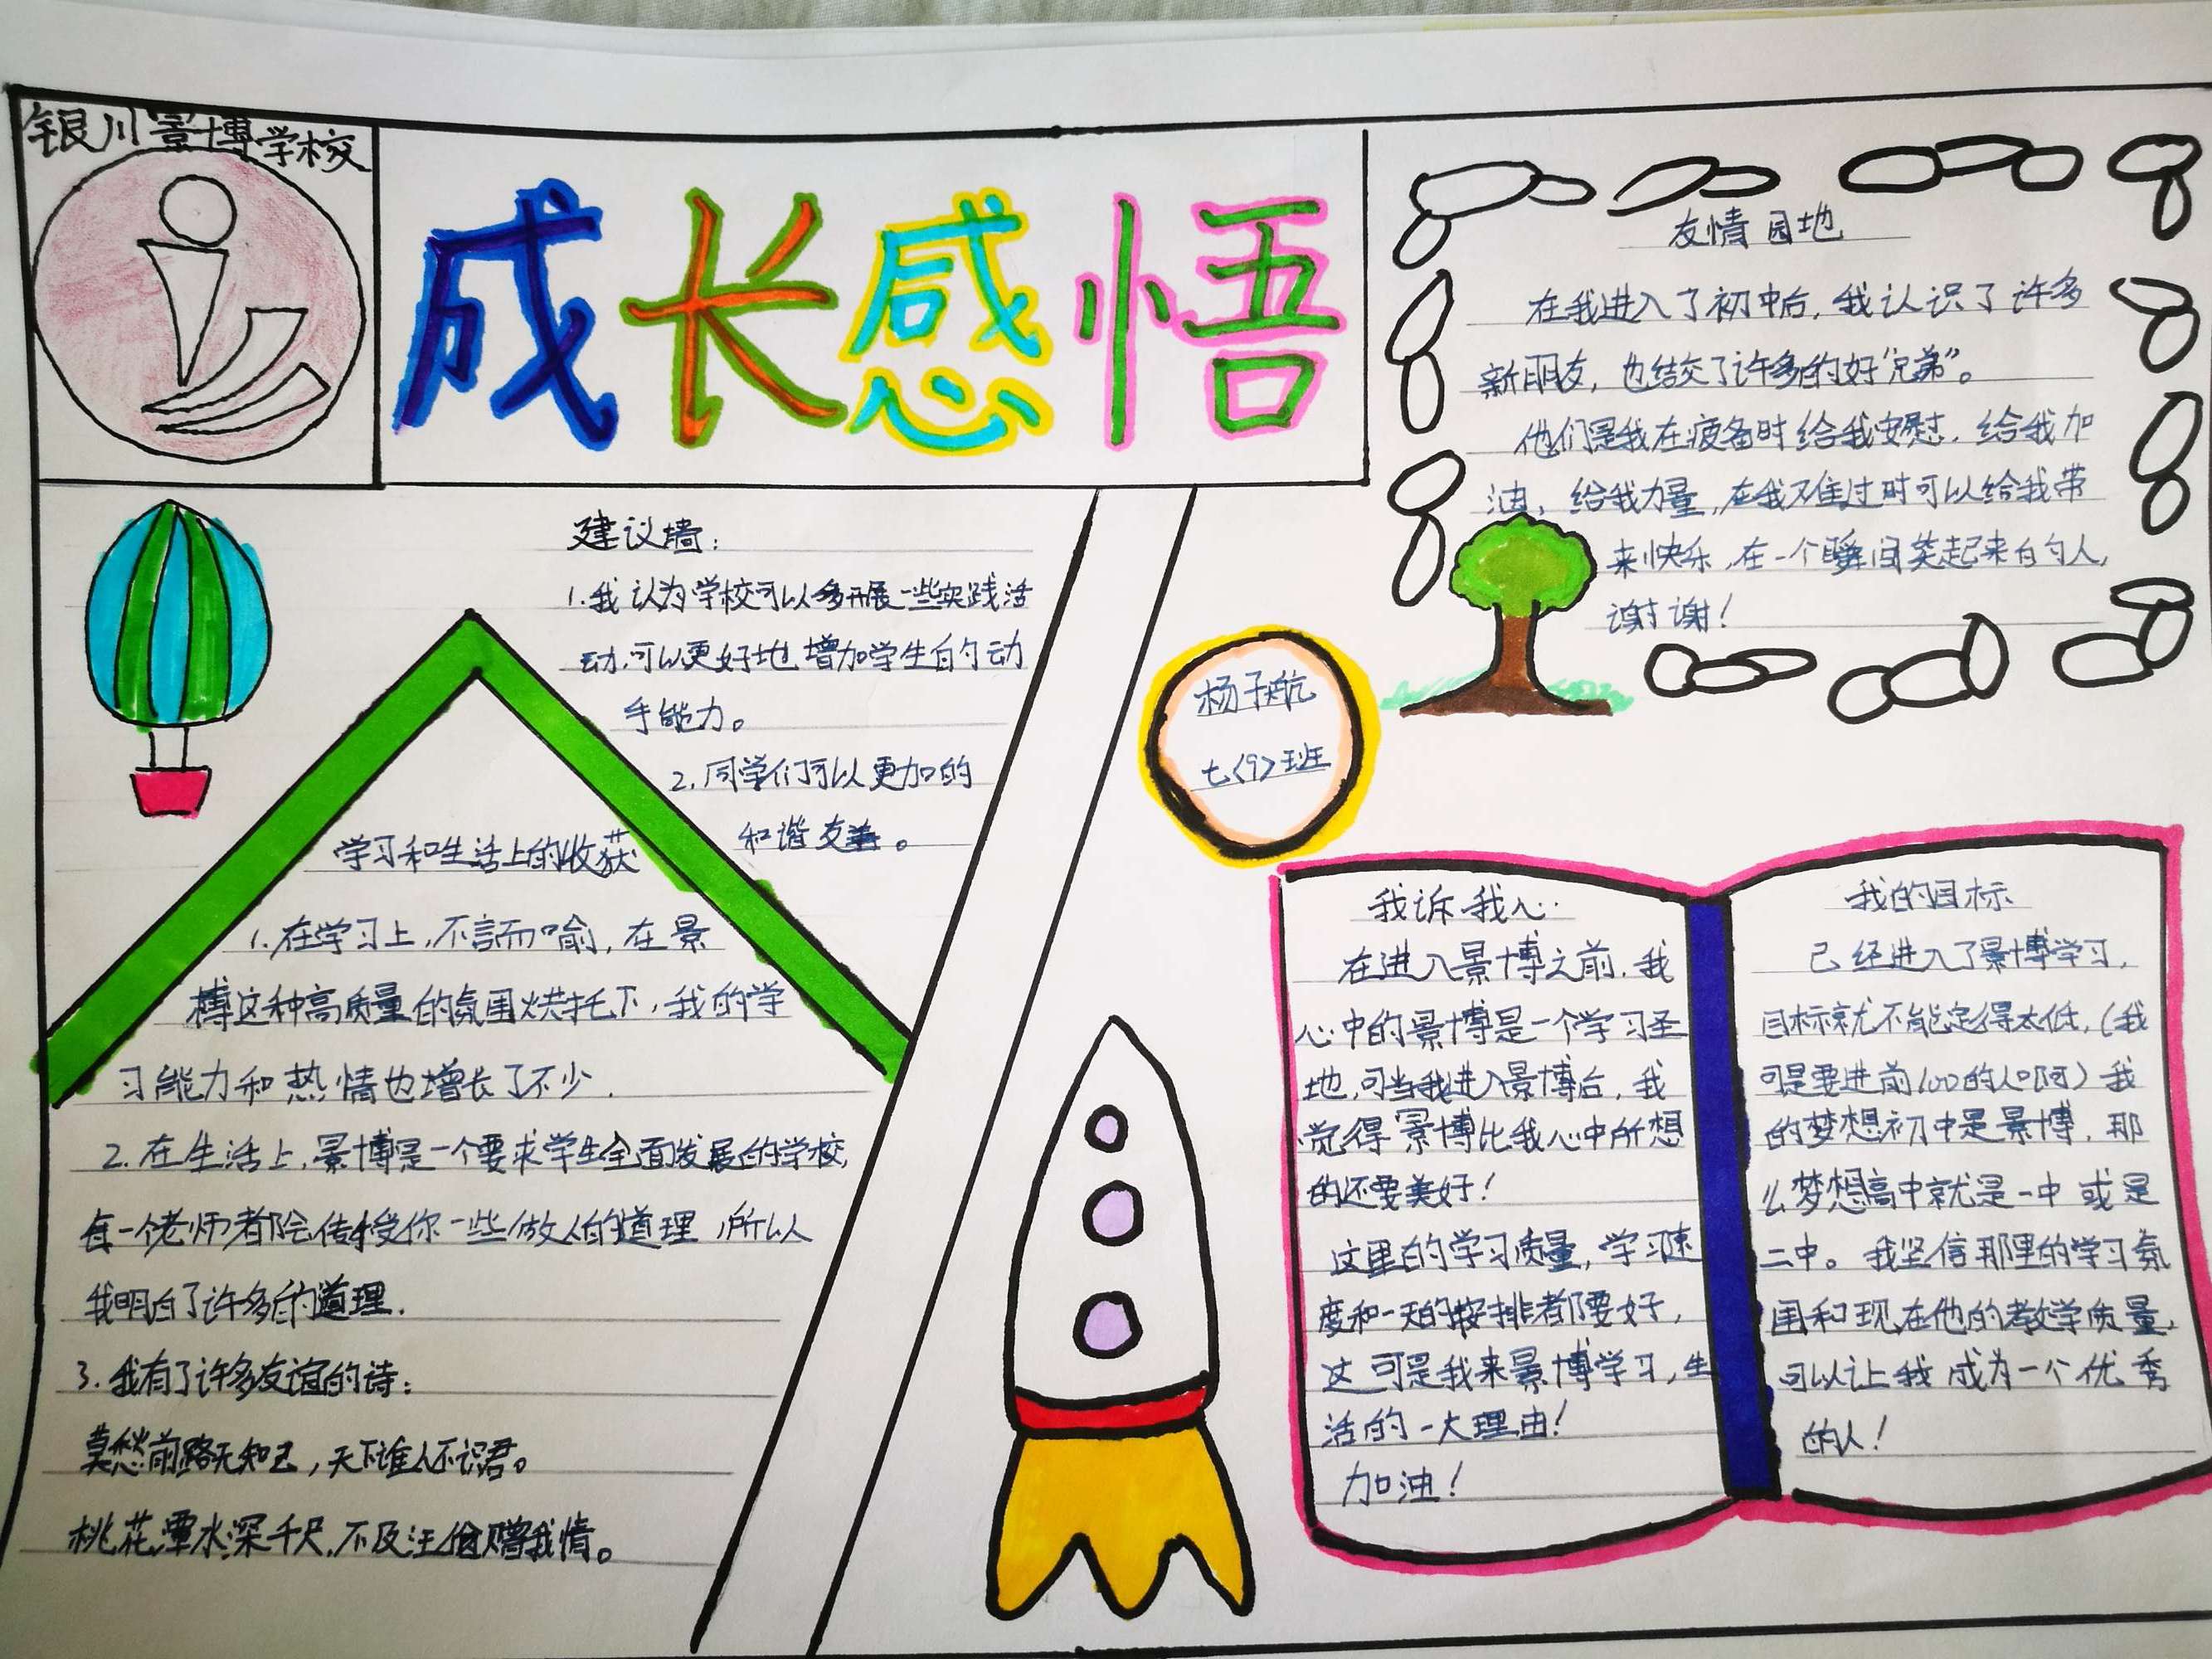 银川景博学校
成长感悟
友情园地
在我进入了初中后,我认识了许多
新朋友,也结交了许多的好“兄弟”。
他们是我在疲备时给我安慰,给我加
油,给我力量,在我难过时可以给我带
来快乐,在一个瞬间笑起来的人,
谢谢!
建议墙:
1.我认为学校可以多开展一些实践活
动,可以更好地增加学生的动
手能力。
2.同学们可以更加的
和谐友善。
杨子航
七<9>班
学习和生活上的收获
1.在学习上,不言而喻,在景
博这种高质量的氛围烘托下,我的学
习能力和热情也增长了不少.
2.在生活上,景博是一个要求学生全面发展的学校,
每一个老师都会传授你一些做人的道理,所以
我明白了许多的道理.
3.我有了许多友谊的诗:
莫愁前路无知己,天下谁人不识君。
桃花潭水深千尺,不及汪伦赠我情。
我诉我心:
在进入景博之前,我
心中的景博是一个学习圣
地,可当我进入景博后,我
觉得景博比我心中所想
的还要美好!
这里的学习质量,学习速
度和一天的按排都要好,
这可是我来景博学习,生
活的一大理由!
加油!
我的目标
已经进入了景博学习,
目标就不能定得太低,(我
可是要进前100的人啊)我
的梦想初中是景博,那
么梦想高中就是一中或是
二中。我坚信那里的学习氛
围和现在他的教学质量,
可以让我成为一个优秀
的人!